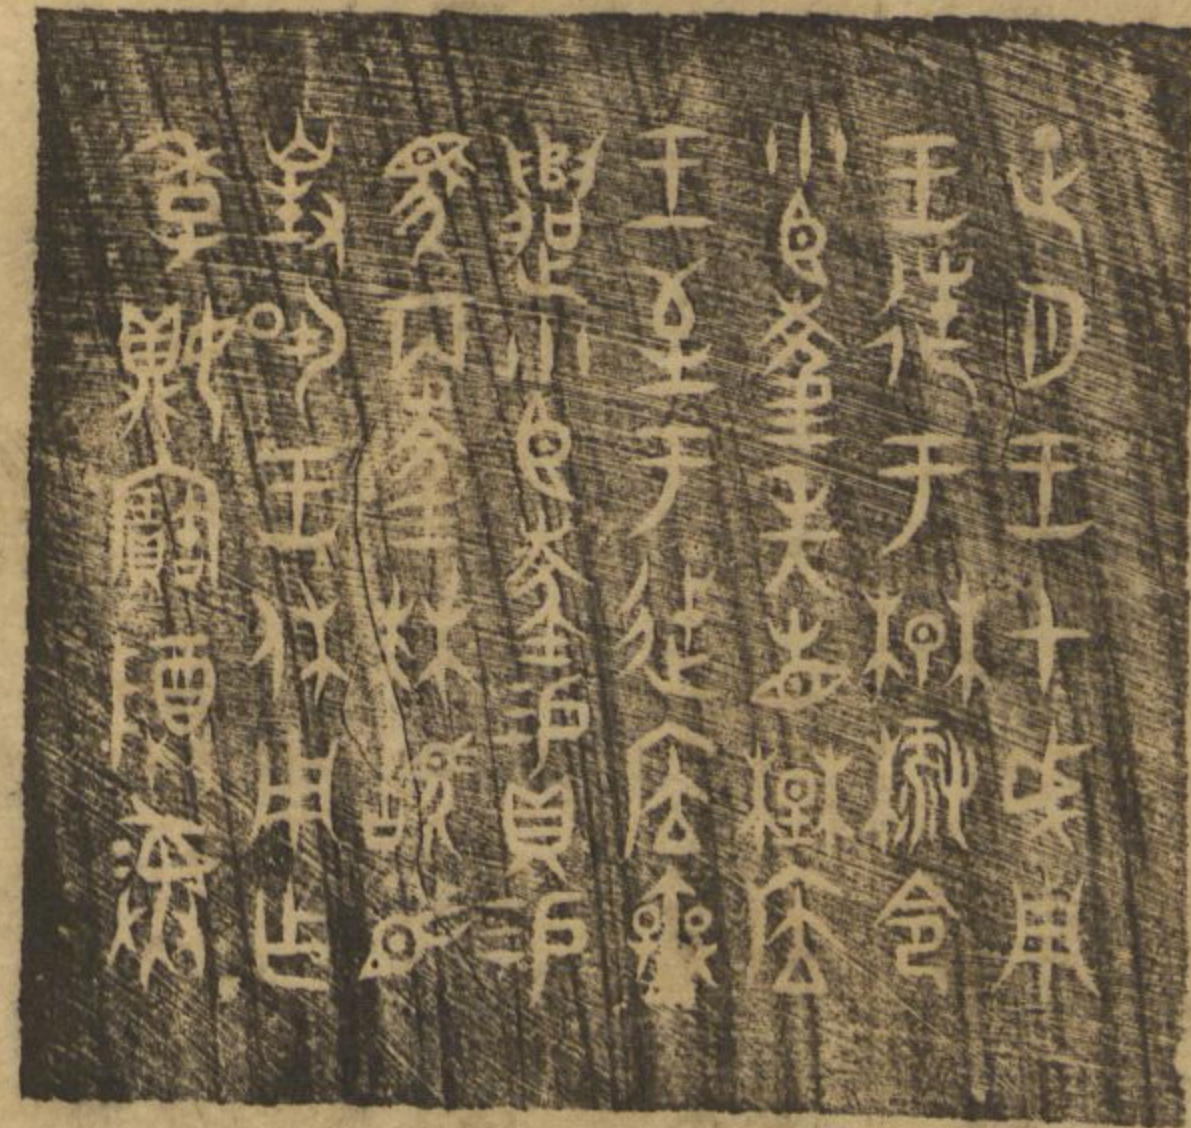 正月王才成周
王于楚麓令
小臣夌先省楚应
王至于应無
遣小臣夌易貝易
馬兩夌拜𩒨首
對揚王休用乍
季㛪寶尊彝